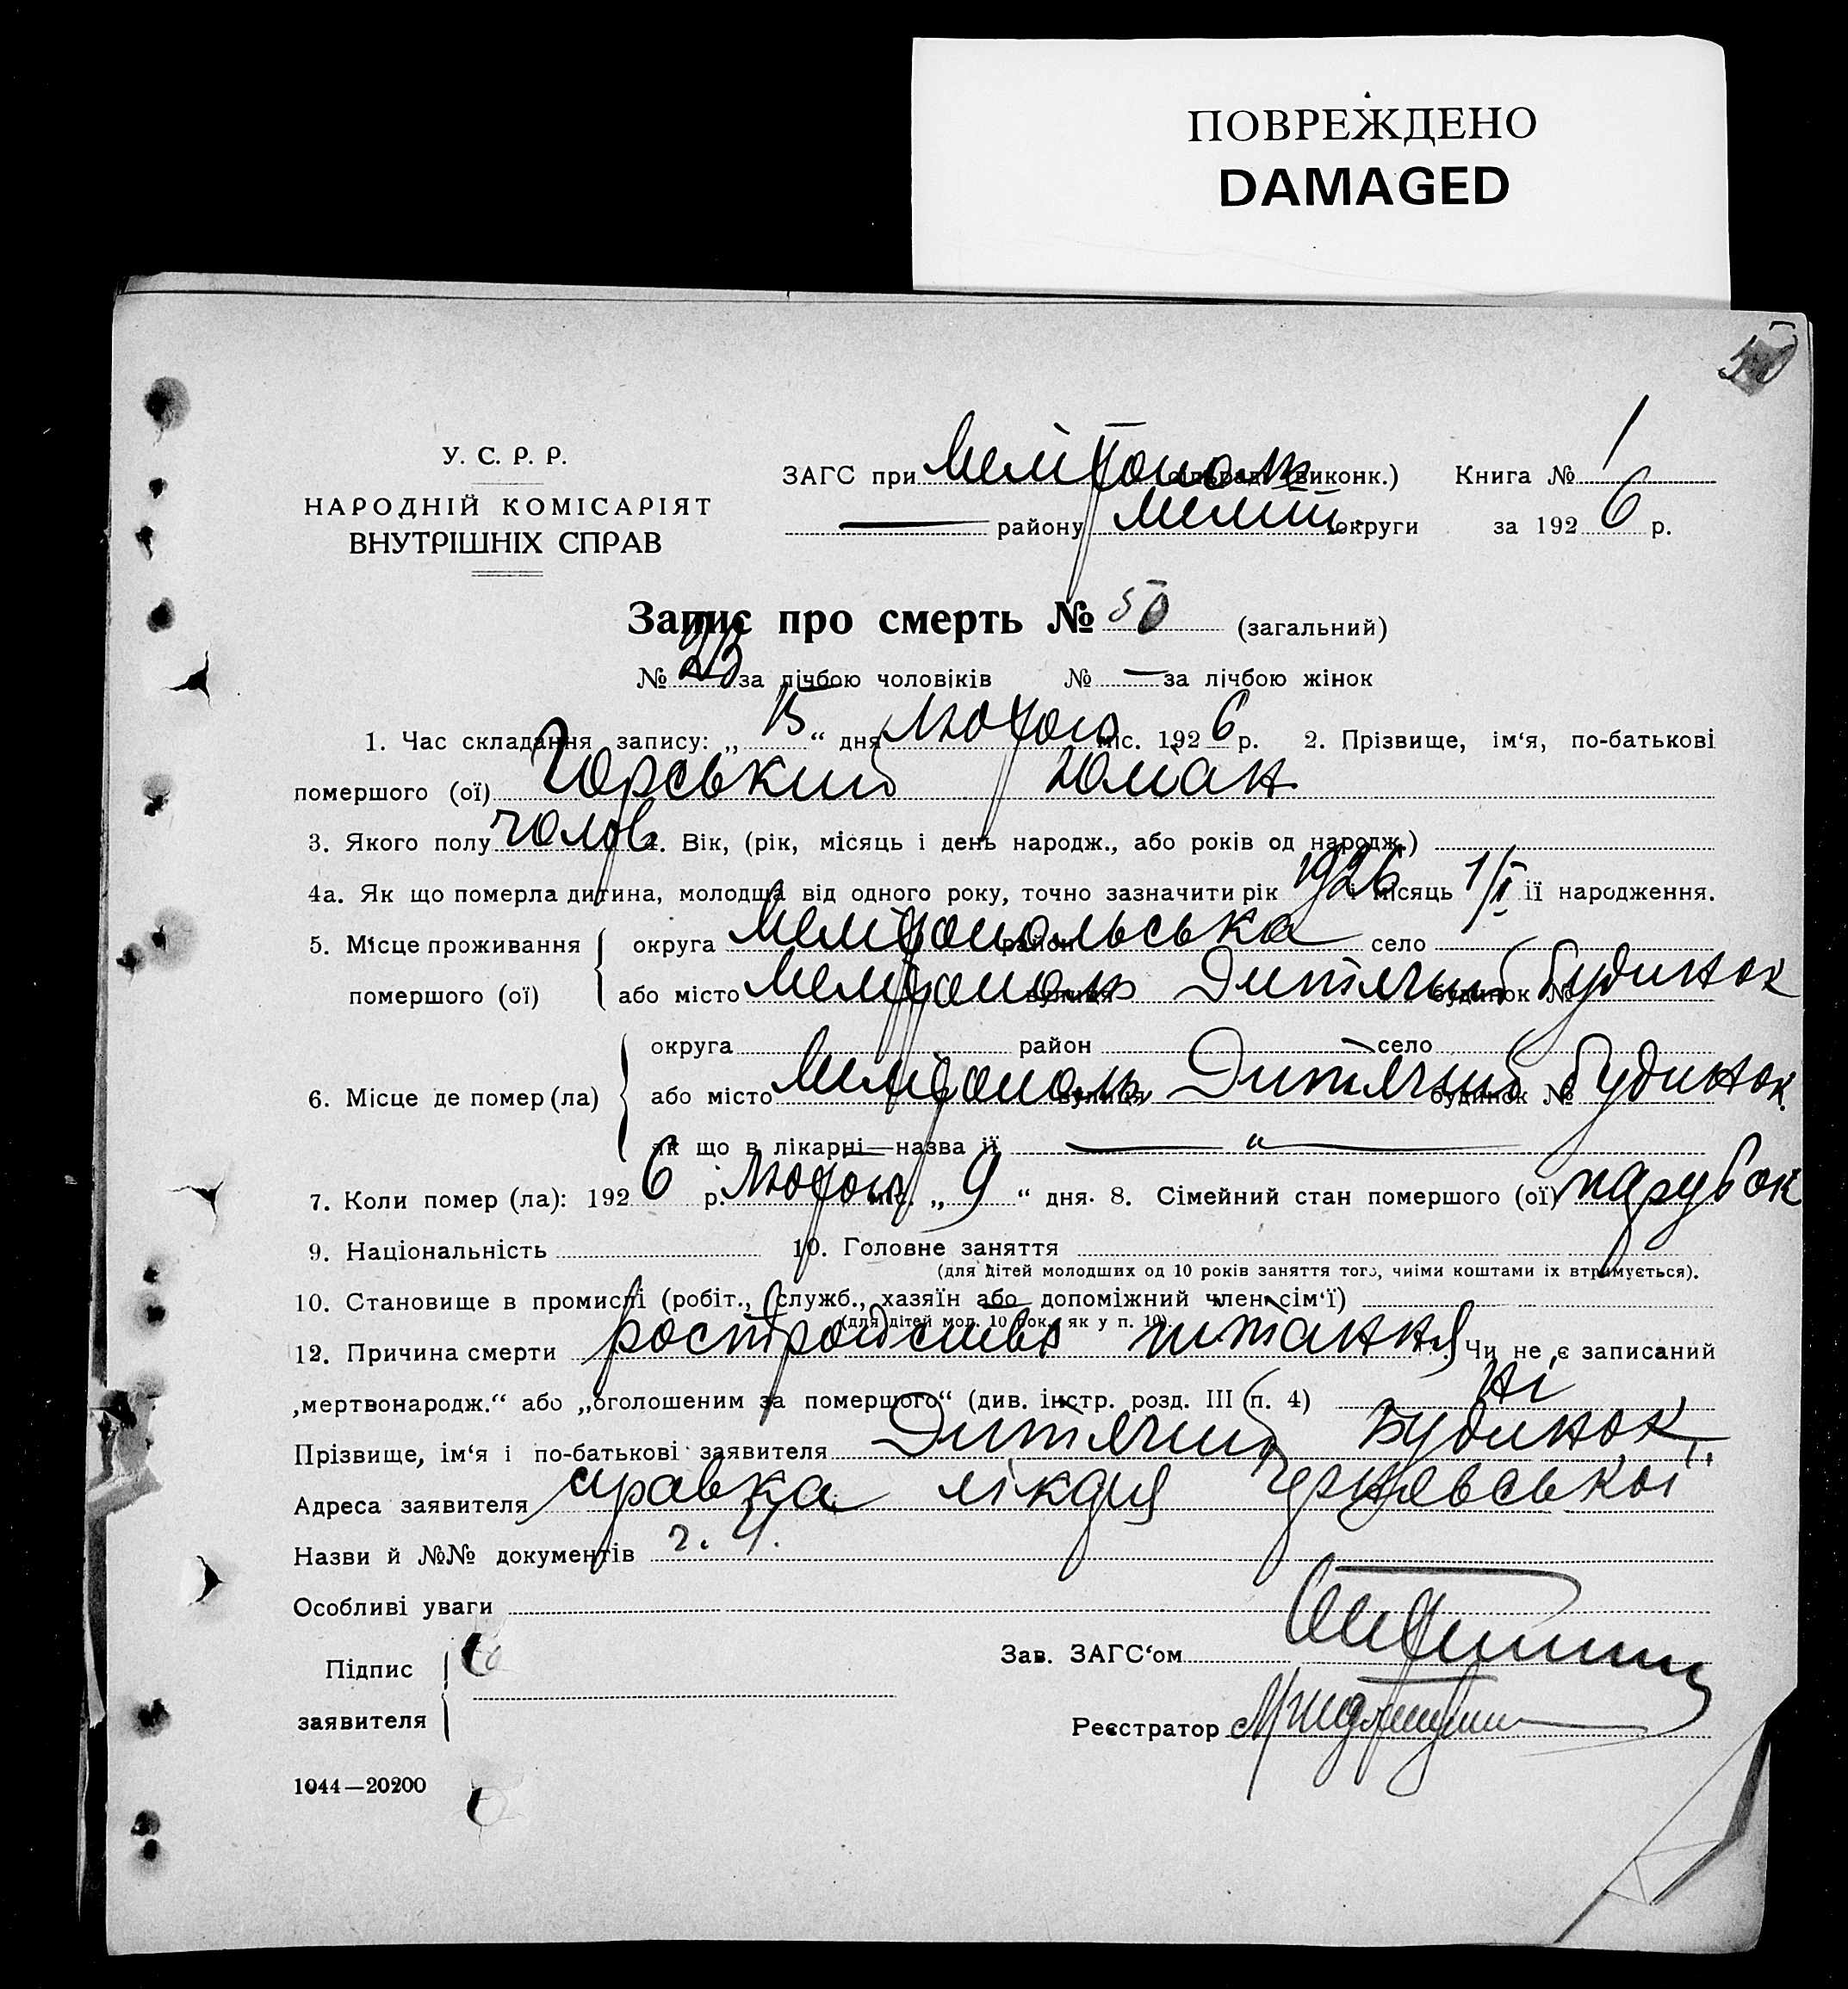 ПОВРЕЖДЕНО
DAMAGED
50
У. С. Р. Р.
НАРОДНІЙ КОМІСАРІЯТ
ВНУТРІШНІХ СПРАВ
ЗАГС при Мелітополь (виконк.) Книга № 1
— району Меліт. округи за 1926 р.
Запис про смерть № 50 (загальний)
№ за лічбою чоловіків № — за лічбою жінок
1. Час складання запису: „15“ дня Лютого міс. 1926 р. 2. Прізвище, ім‘я, по-батькові
помершого (ої) Горський Юліан
3. Якого полу чолов. 4. Вік, (рік, місяць і день народж., або років од народж.)
4а. Як що померла дитина, молодша від одного року, точно зазначити рік 1926 і місяць 1/I ії народження.
5. Місце проживання округа Мелітопольська район село
помершого (ої) або місто Мелітополь вулиця Дитячий будинок № будинок
округа район село
6. Місце де помер (ла) або місто Мелітополь вулиця Дитячий будинок № будинок
як що в лікарні—назва ії — „ —
7. Коли помер (ла): 1926 р. Лютого міс. „9“ дня. 8. Сімейний стан помершого (ої) парубок
9. Національність 10. Головне заняття
(для дітей молодших од 10 років заняття того, чиїми коштами їх втримується).
10. Становище в промислі (робіт., служб., хазяїн або допоміжний член сім‘ї)
(для дітей мол. 10 рок. як у п. 10).
12. Причина смерти ростройство питання Чи не є записаний
„мертвонародж.“ або „оголошеним за помершого“ (див. інстр. розд. III п. 4) Ні
Прізвище, ім‘я і по-батькові заявителя Дитячий Будинок
Адреса заявителя справка лікаря
Назви й №№ документів ч. 4.
Особливі уваги
Підпис Зав. ЗАГС‘ом
заявителя Реєстратор
1044—20200